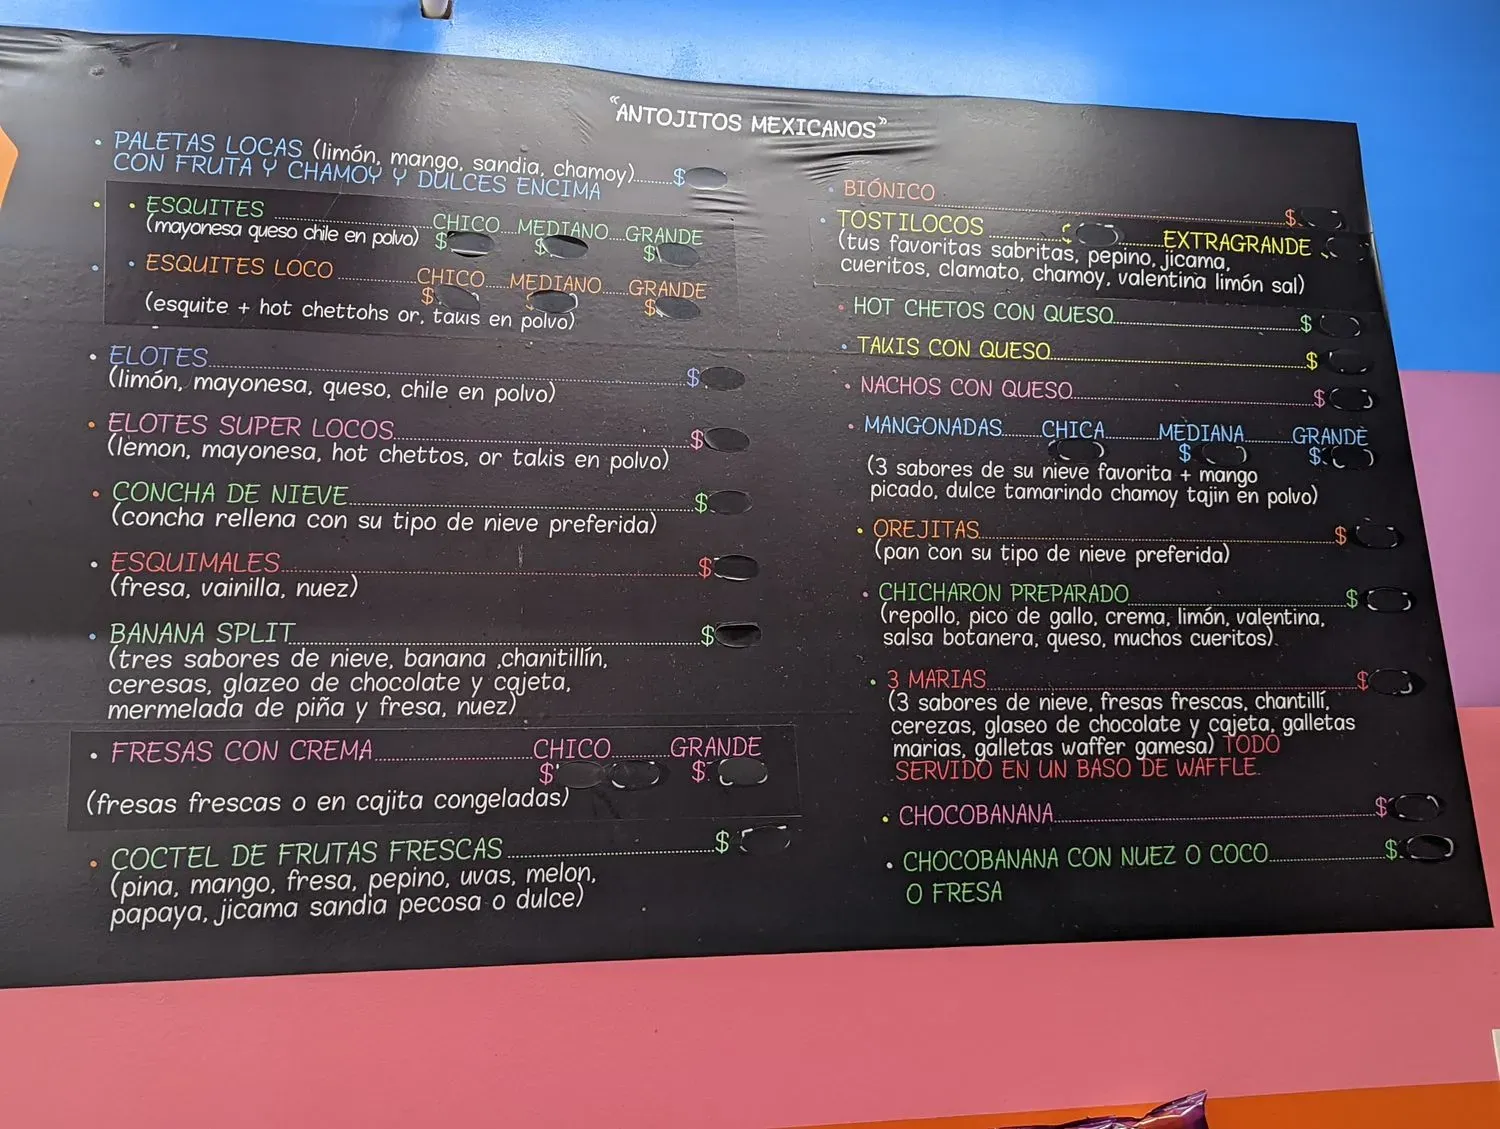 "ANTOJITOS MEXICANOS"
• PALETAS LOCAS (limón, mango, sandia, chamoy)..........$
CON FRUTA Y CHAMOY Y DULCES ENCIMA
• ESQUITES ..........CHICO...MEDIANO...GRANDE
(mayonesa queso chile en polvo) $ $ $
• ESQUITES LOCO ..........CHICO.....MEDIANO.....GRANDE
$ $
(esquite + hot chettohs or, takis en polvo)
• ELOTES..........$
(limón, mayonesa, queso, chile en polvo)
• ELOTES SUPER LOCOS..........$
(lemon, mayonesa, hot chettos, or takis en polvo)
• CONCHA DE NIEVE..........$
(concha rellena con su tipo de nieve preferida)
• ESQUIMALES..........$
(fresa, vainilla, nuez)
• BANANA SPLIT..........$
(tres sabores de nieve, banana ,chanitillín,
ceresas, glazeo de chocolate y cajeta,
mermelada de piña y fresa, nuez)
• FRESAS CON CREMA..........CHICO..........GRANDE
$ $
(fresas frescas o en cajita congeladas)
• COCTEL DE FRUTAS FRESCAS..........$
(pina, mango, fresa, pepino, uvas, melon,
papaya, jicama sandia pecosa o dulce)
• BIÓNICO..........$
• TOSTILOCOS ..........EXTRAGRANDE
(tus favoritas sabritas, pepino, jicama,
cueritos, clamato, chamoy, valentina limón sal)
• HOT CHETOS CON QUESO..........$
• TAKIS CON QUESO..........$
• NACHOS CON QUESO..........$
• MANGONADAS..........CHICA..........MEDIANA..........GRANDE
$ $
(3 sabores de su nieve favorita + mango
picado, dulce tamarindo chamoy tajin en polvo)
• OREJITAS..........$
(pan con su tipo de nieve preferida)
• CHICHARON PREPARADO..........$
(repollo, pico de gallo, crema, limón, valentina,
salsa botanera, queso, muchos cueritos).
• 3 MARIAS..........$
(3 sabores de nieve, fresas frescas, chantillí,
cerezas, glaseo de chocolate y cajeta, galletas
marias, galletas waffer gamesa) TODO
SERVIDO EN UN BASO DE WAFFLE.
• CHOCOBANANA..........$
• CHOCOBANANA CON NUEZ O COCO..........$
O FRESA